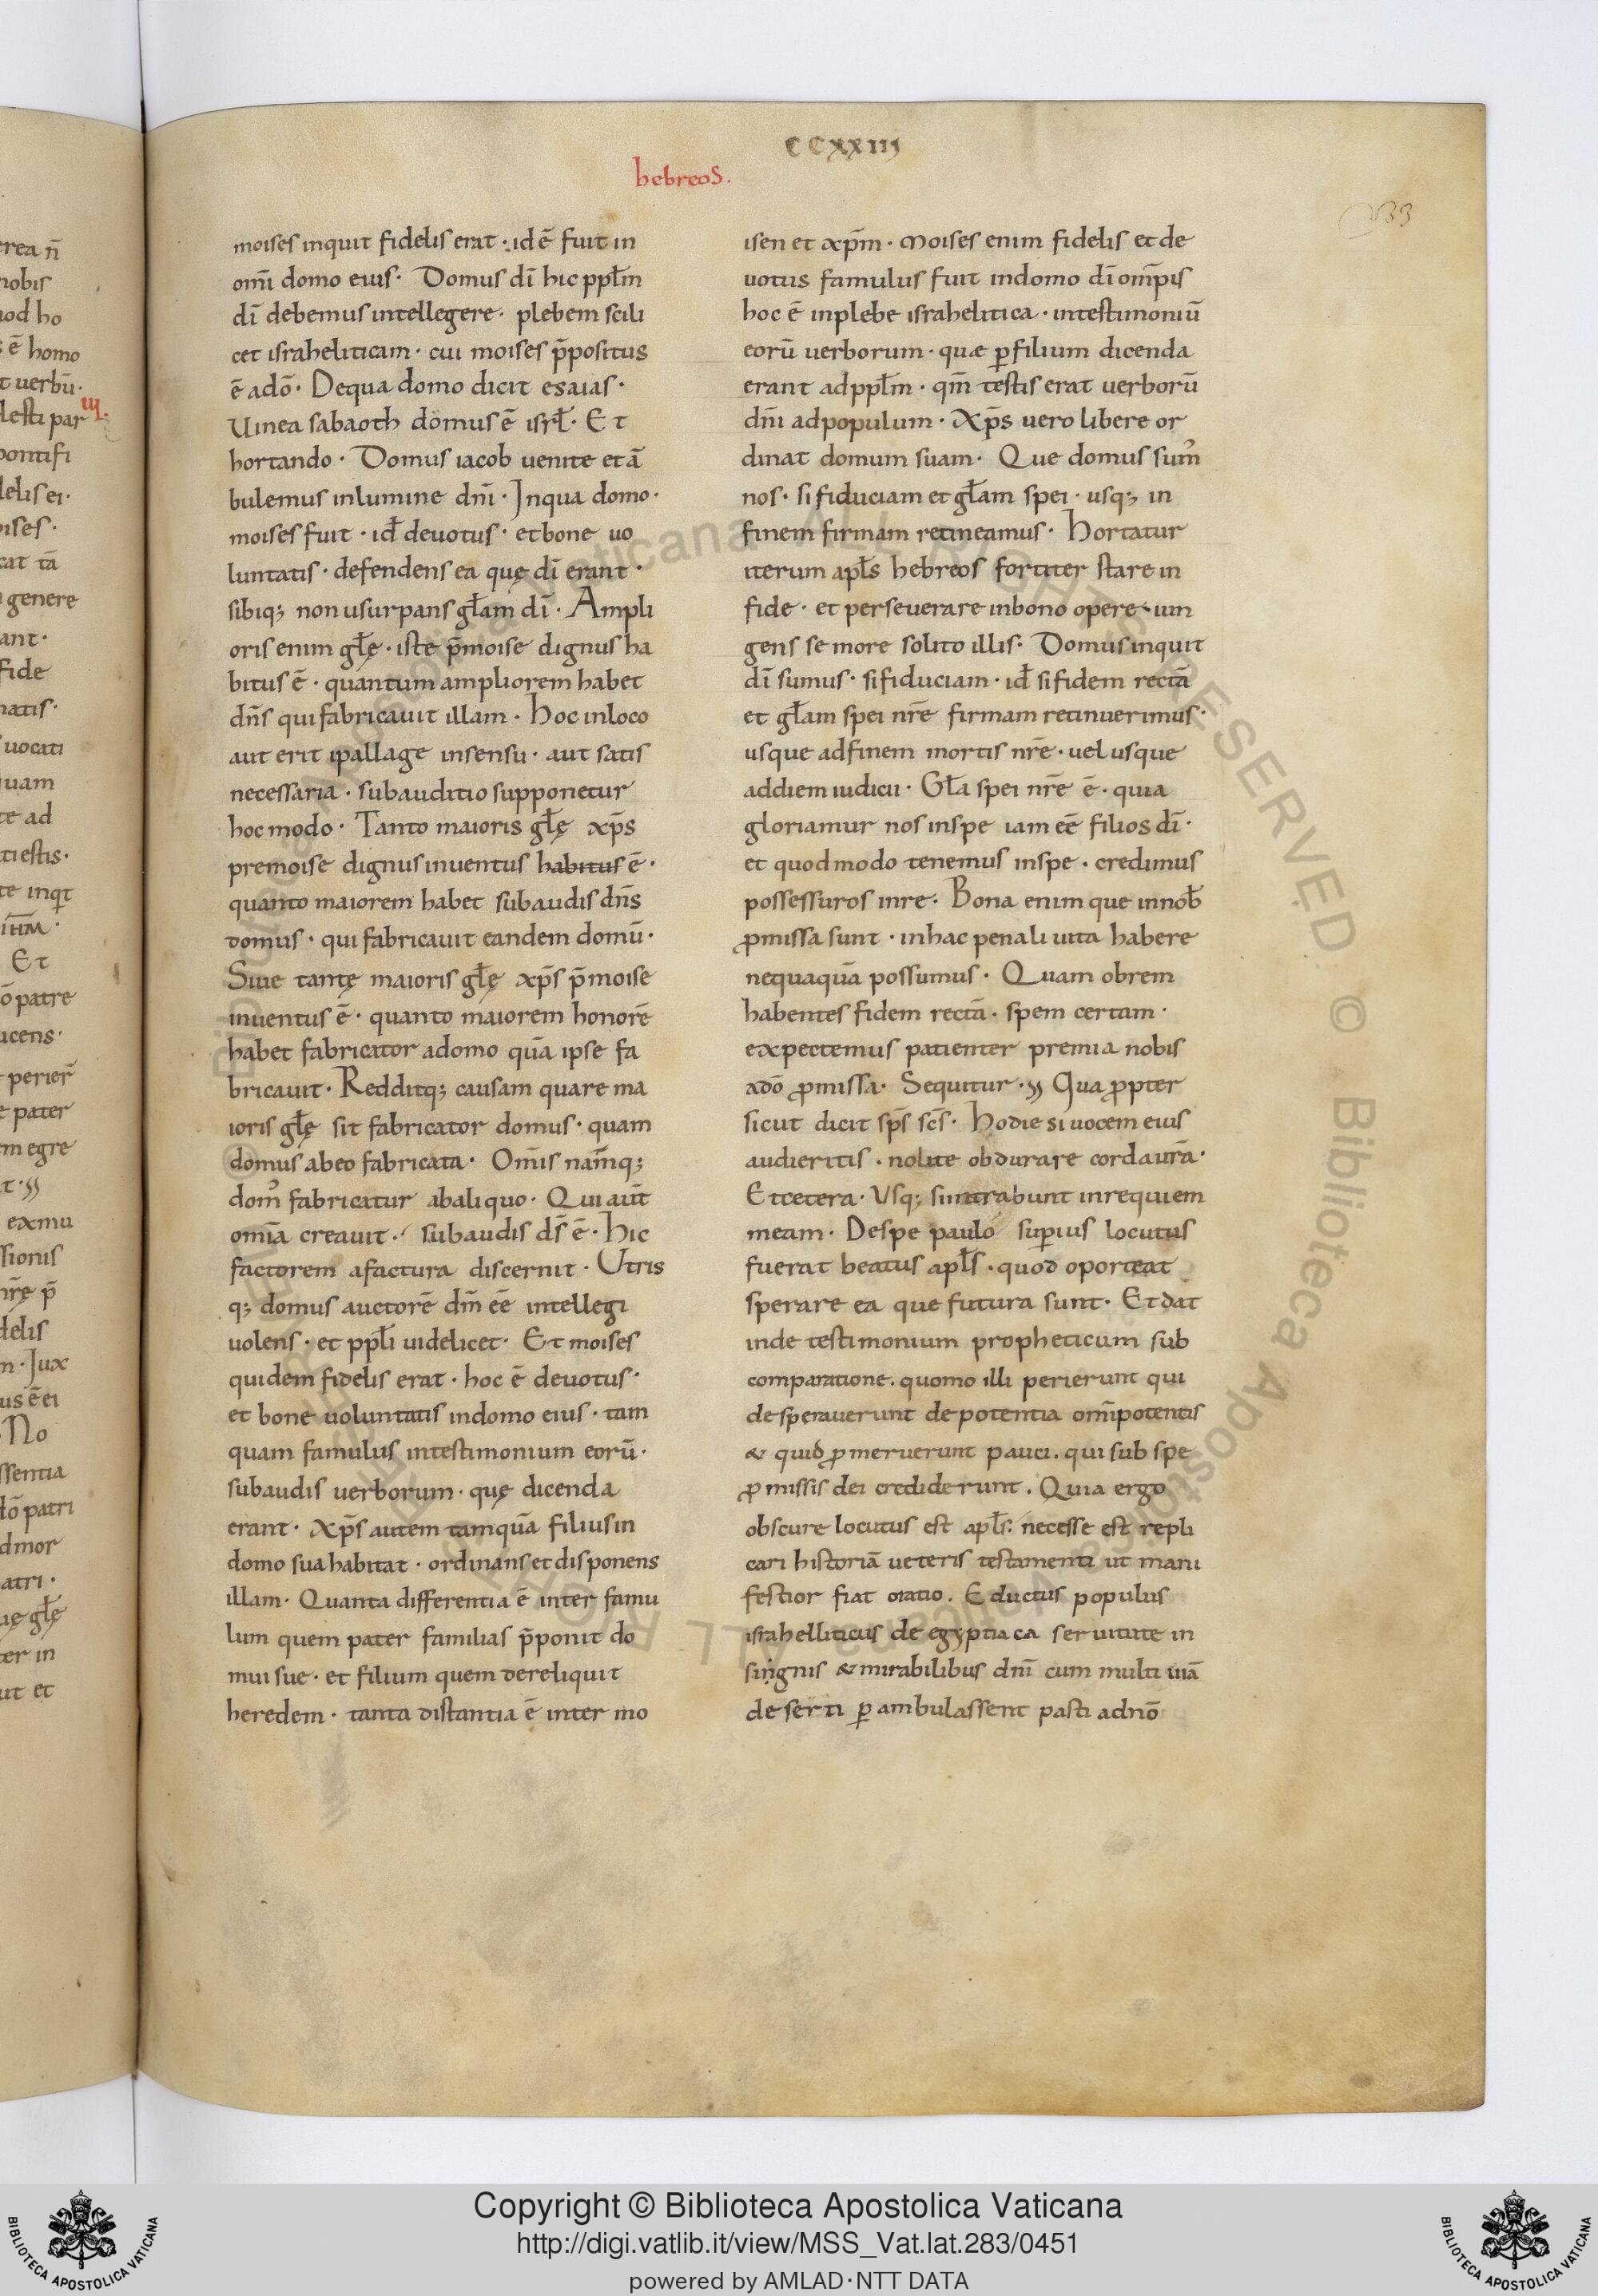 CCXXIIJ
hebreos.
moises inquit fidelis erat · id ē fuit in
om̄i domo eius · Domus dī hic ppłm
dī debemus intellegere · plebem scili
cet israheliticam · cui moises p̄positus
ē adō · Dequa domo dicit esaias ·
Uinea sabaoth domus ē isrł · Et
hortando · Domus iacob uenite et ā
bulemus inlumine dnī · Inqua domo ·
moises fuit · id̄ deuotus · et bone uo
luntatis · defendens ea quę dī erant ·
sibiq; non usurpans głam dī · Ampli
oris enim głę · iste p̄moise dignus ha
bitus ē · quantum ampliorem habet
dn̄s qui fabricauit illam · Hoc inloco
aut erit ipallage insensu · aut satis
necessaria · subauditio supponetur
hoc modo · Tanto maioris głę xp̄s
premoise dignus inuentus habitus ē ·
quanto maiorem habet subaudis dn̄s
domus · qui fabricauit eandem domū ·
Siue tantę maioris głę xp̄s p̄moise
inuentus ē · quanto maiorem honorē
habet fabricator adomo quā ipse fa
bricauit · Redditq; causam quare ma
ioris głę sit fabricator domus · quam
domus abeo fabricata · Om̄is nāmq;
dom᾿ fabricatur abaliquo · Qui aut̄
om̄ia creauit · subaudis ds̄ ē · Hic
factorem afactura discernit · Utris
q; domus auctorē dm̄ eē intellegi
uolens · et ppłi uidelicet · Et moises
quidem fidelis erat · hoc ē deuotus ·
et bone uoluntatis indomo eius · tam
quam famulus intestimonium eorū ·
subaudis uerborum · quę dicenda
erant · Xp̄s autem tamquā filius in
domo sua habitat · ordinans et disponens
illam · Quanta differentia ē inter famu
lum quem pater familias p̄ponit do
mui sue · et filium quem dereliquit
heredem · tanta distantia ē inter mo
isen et xp̄m · Moises enim fidelis et de
uotus famulus fuit indomo dī om̄ptis
hoc ē inplebe israhelitica · intestimoniū
eorū uerborum · quæ ꝑ filium dicenda
erant adppłm · qm̄ testis erat uerborū
dn̄i adpopulum · Xp̄s uero libere or
dinat domum suam · Que domus sum᾿
nos · si fiduciam et głam spei · usq; in
finem firmam retineamus · Hortatur
iterum apłs hebreos fortiter stare in
fide · et perseuerare inbono opere · iun
gens se more solito illis · Domus inquit
dī sumus · si fiduciam · id̄ si fidem rectā
et głam spei nr̄e firmam retinuerimus ·
usque adfinem mortis nr̄e · uel usque
addiem iudicii · Gła spei nr̄e ē · quia
gloriamur nos inspe iam eē filios dī ·
et quod modo tenemus inspe · credimus
possessuros inre · Bona enim que innob̄
ꝓmissa sunt · inhac penali uita habere
nequaquā possumus · Quam obrem
habentes fidem rectā · spem certam ·
expectemus patienter premia nobis
adō ꝓmissa · Sequitur · Qua ꝓpter
sicut dicit sp̄s sc̄s · Hodie si uocem eius
audieritis · nolite obdurare corda ur̄a ·
Et cetera · Usq; si intrabunt inrequiem
meam · Despe paulo suꝑius locutus
fuerat beatus apłs · quod oporteat
sperare ea que futura sunt · Et dat
inde testimonium propheticum sub
comparatione · quomo illi perierunt qui
desperauerunt de potentia om̄ipotentis
& quid ꝓmeruerunt pauci · qui sub spe
ꝓmissis dei crediderunt · Quia ergo
obscure locutus est apłs · necesse est repli
cari historiā ueteris testamenti ut mani
festior fiat oratio · Eductus populus
israhelliticus de egyptiaca seruitute in
singnis & mirabilibus dnī cum multi uiā
deserti ꝑambulassent pasti adnō
Copyright © Biblioteca Apostolica Vaticana
http://digi.vatlib.it/view/MSS_Vat.lat.283/0451
powered by AMLAD·NTT DATA